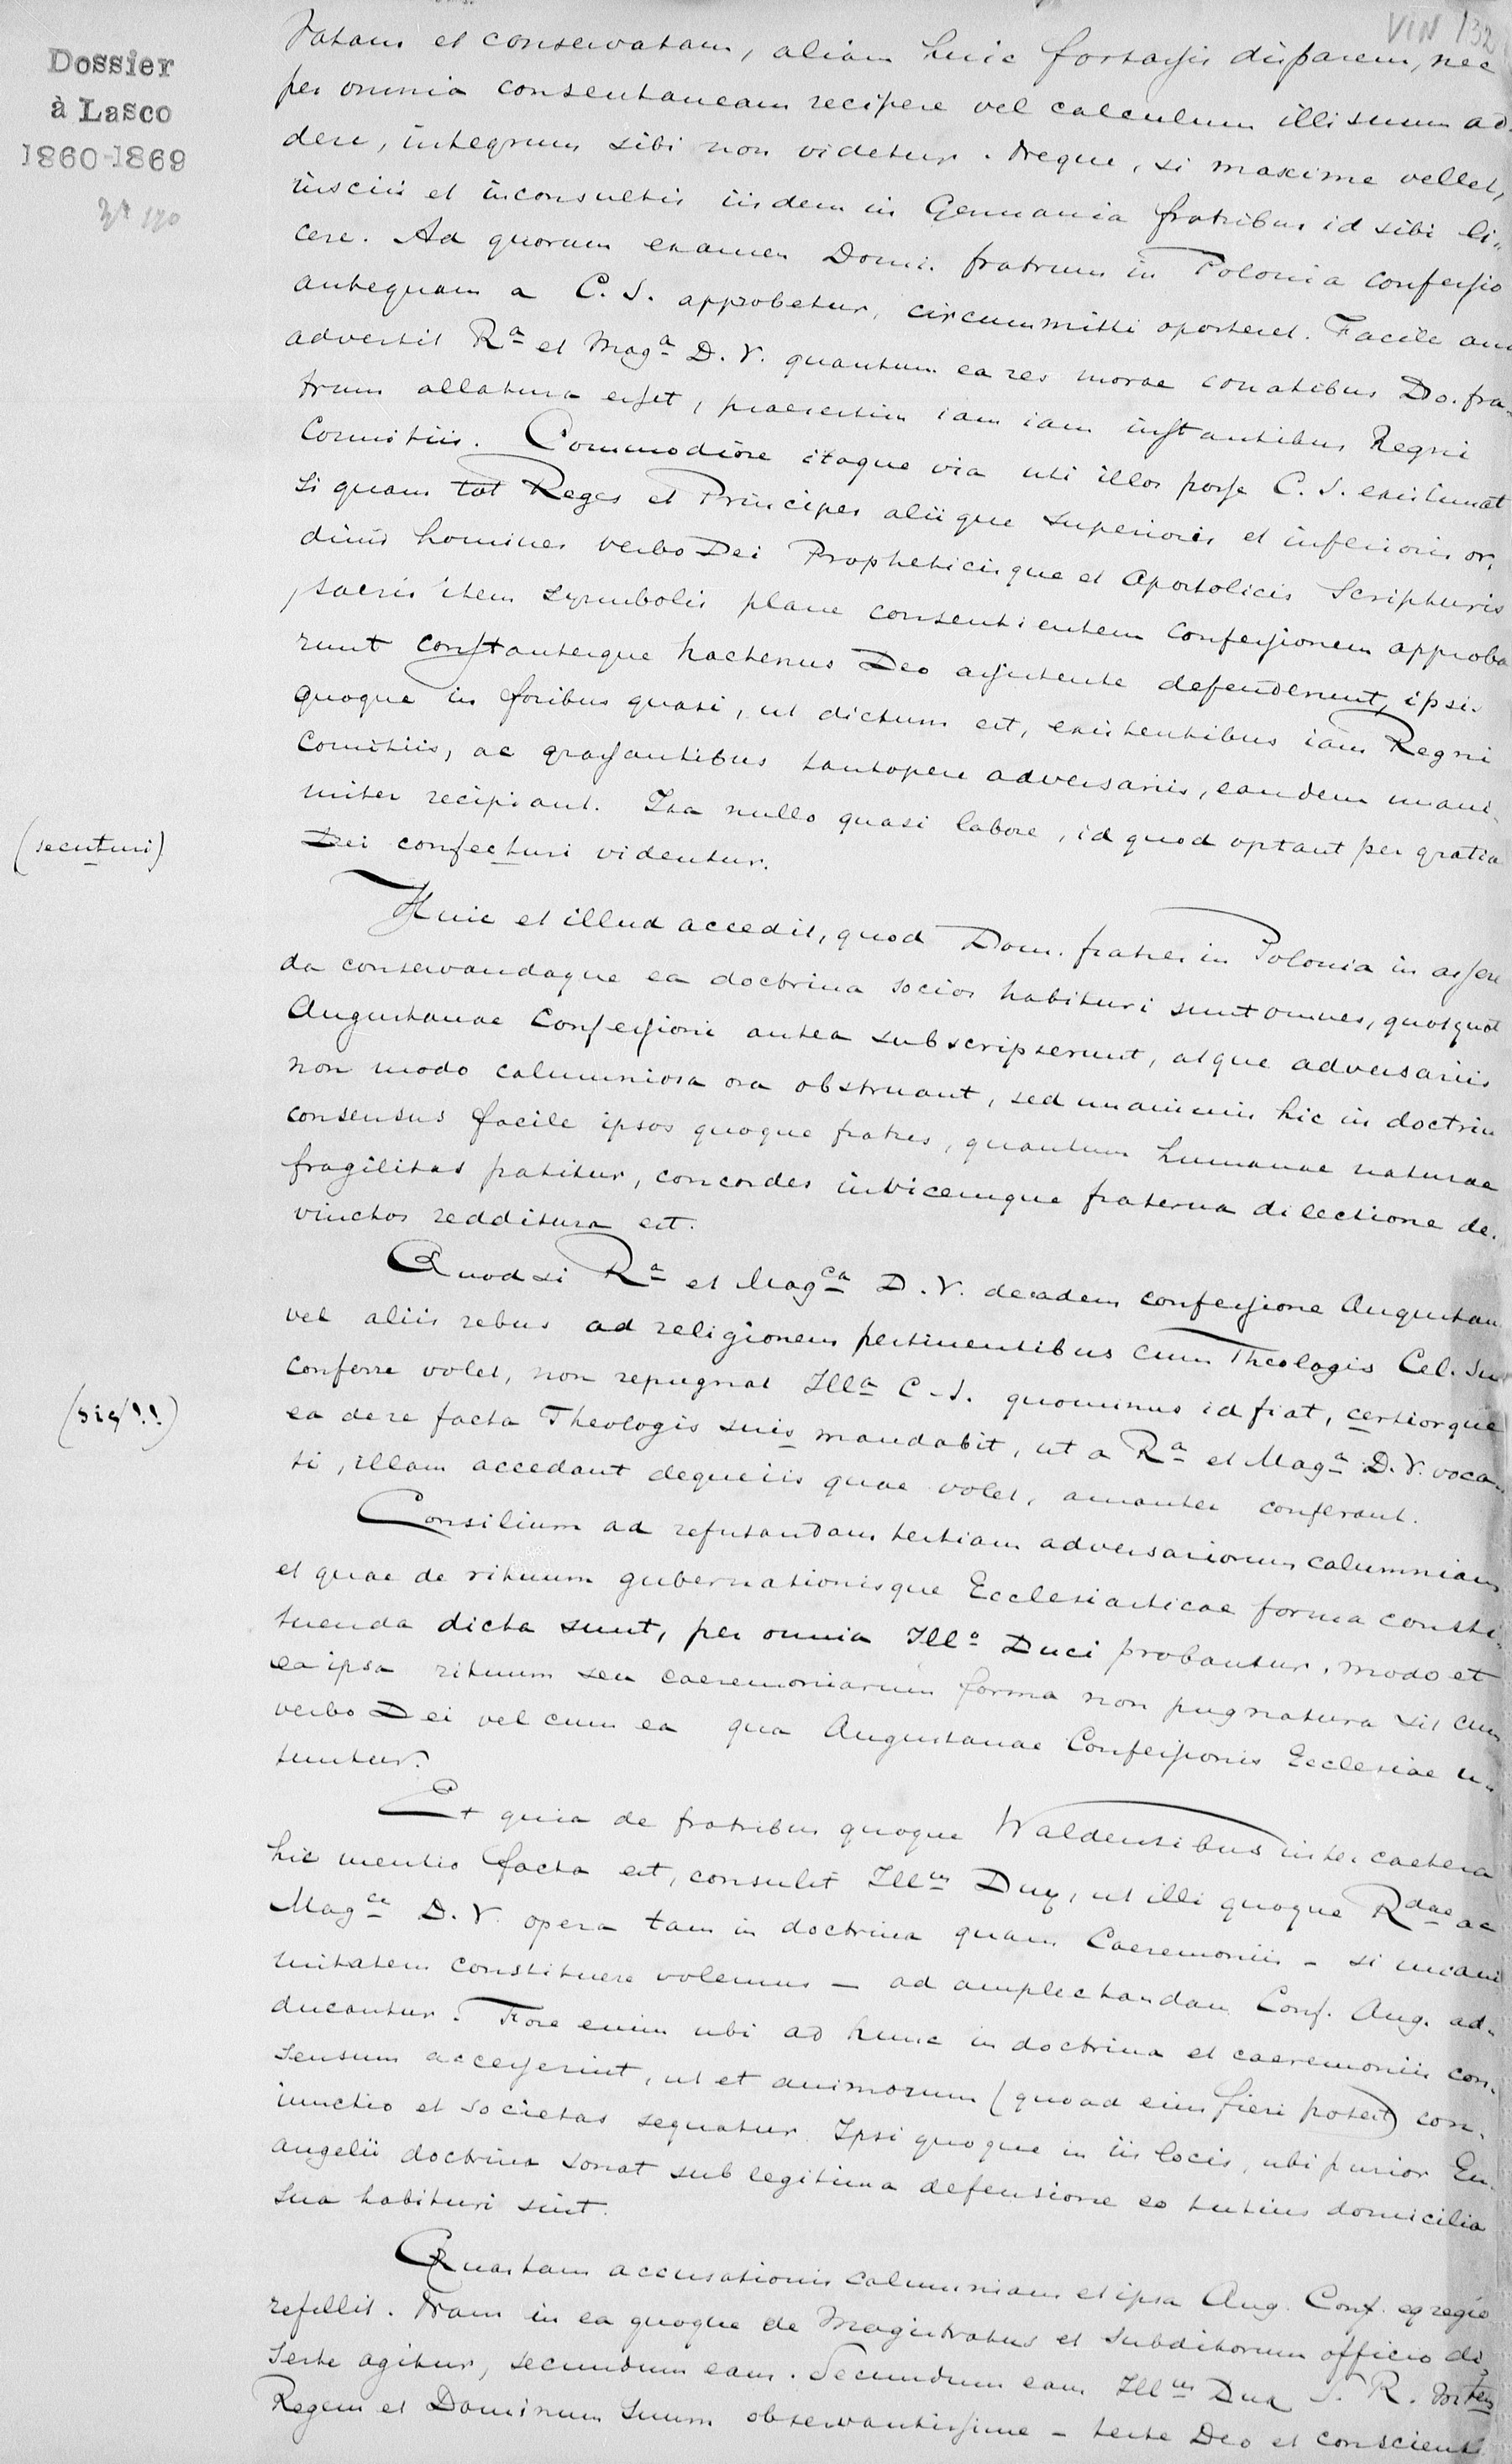 VIN 132
Dossier
à Lasco
1860-1869
tatam et conservatam, aliam huic fortassis disparem, nec
per omnia consentaneam recipere vel calculum illi suum ad-
dere, integrum sibi non videtur. Neque, si maxime vellet,
insciis et inconsultis iisdem in Germania fratribus id sibi li-
cere. Ad quorum examen Domi. fratrum in Polonia confessio
antequam a C. S. approbetur, circummitti oporteret. Facile au
advertit Rª et Magª D. V. quantum ea res morae conatibus Do. fra-
trum allatura esset, praesertim iam iam instantibus Regni
Comitiis. Commodiore itaque via uti illos posse C. S. existimat
si quam tot Reges et Principes aliique superioris et inferioris or-
dinis homines verbo Dei Propheticisque et Apostolicis Scripturis
, sacris item symbolis plane consentientem confessionem approba
runt constanterque hactenus Deo assistente defenderunt, ipsi
quoque in foribus quasi, ut dictum est, existentibus iam Regni
Comitiis, ac grassantibus tantopere adversariis, eandem unani-
miter recipiant. Ita nullo quasi labore, id quod optant per gratia
(secuturi) Dei confecturi videntur.
Huic et illud accedit, quod Dom. fratres in Polonia in asseren
da conservandaque ea doctrina socios habituri sunt omnes, quotquot
Augustanae Confessioni antea subscripserunt, atque adversariis
non modo calumniosa ora obstruant, sed unanimis hic in doctrin
consensus facile ipsos quoque fratres, quantum humanae naturae
fragilitas patitur, concordes invicemque fraterna dilectione de-
vinctos redditura est.
Quod si Rª et Magca D. V. de eadem confessione Augustan
vel aliis rebus ad religionem pertinentibus cum Theologis Cel. Su
conferre volet, non repugnat Illª C. S. quominus id fiat, certiorque
(sis/!!) ea de re facta Theologis suis mandabit, ut a Rª et Magª D. V. voca-
ti, illam accedant deque iis quae volet, amanter conferant.
Consilium ad refutandam tertiam adversariorum calumniam
et quae de rituum gubernationisque Ecclesiasticae forma consti-
tuenda dicta sunt, per omnia Illº Duci probantur, modo et
ea ipsa rituum seu caeremoniarum forma non pugnatura sit cum
verbo Dei vel cum ea qua Augustanae Confessionis Ecclesiae u-
tuntur.
Et quia de fratribus quoque Waldensibus inter caetera
hic mentio facta est, consulit Illm Dux, ut illi quoque Rdae ac
Magce D. V. opera tam in doctrina quam Caeremoniis - si unani
mitatem constituere volemus - ad amplectandam Conf. Aug. ad-
ducantur. Fore enim ubi ad hunc in doctrina et caeremoniis con-
sensum accesserint, ut et animorum (quoad eius fieri potest) con-
iunctio et societas sequatur. Ipsi quoque in iis locis, ubi purior Eu-
angelii doctrina sonat sub legitima defensione eo tutius domicilia
sua habituri sint.
Quartam accusationis calumniam et ipsa Aug. Conf. egregie
refellit. Nam in ea quoque de Magistratus et subditorum officio di-
serte agitur, secundum eam. Secundum eam Illm Dux S. R.
Regem et Dominum suum observantissime - teste Deo et conscient